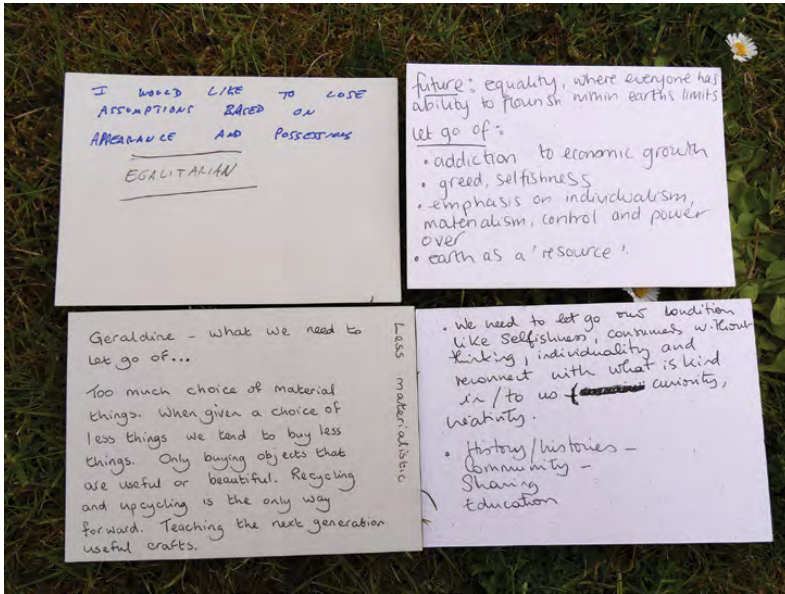 I WOULD LIKE TO LOSE
ASSUMPTIONS BASED ON
APPEARANCE AND POSSESSIONS
EGALITARIAN
future: equality, where everyone has
ability to flourish within earths limits
let go of:
• addiction to economic growth
• greed, selfishness
• emphasis on individualism,
materialism, control and power
over
• earth as a 'resource'.
Geraldine - what we need to
let go of...
Too much choice of material
things. When given a choice of
less things we tend to buy less
things. Only buying objects that
are useful or beautiful. Recycling
and upcycling is the only way
forward. Teaching the next generation
useful crafts.
Less materialistic
• We need to let go our condition
like selfishness, consumes without
thinking, individuality and
reconnect with what is kind
in/to us curiosity,
creativity.
• History/histories -
Community -
Sharing
Education